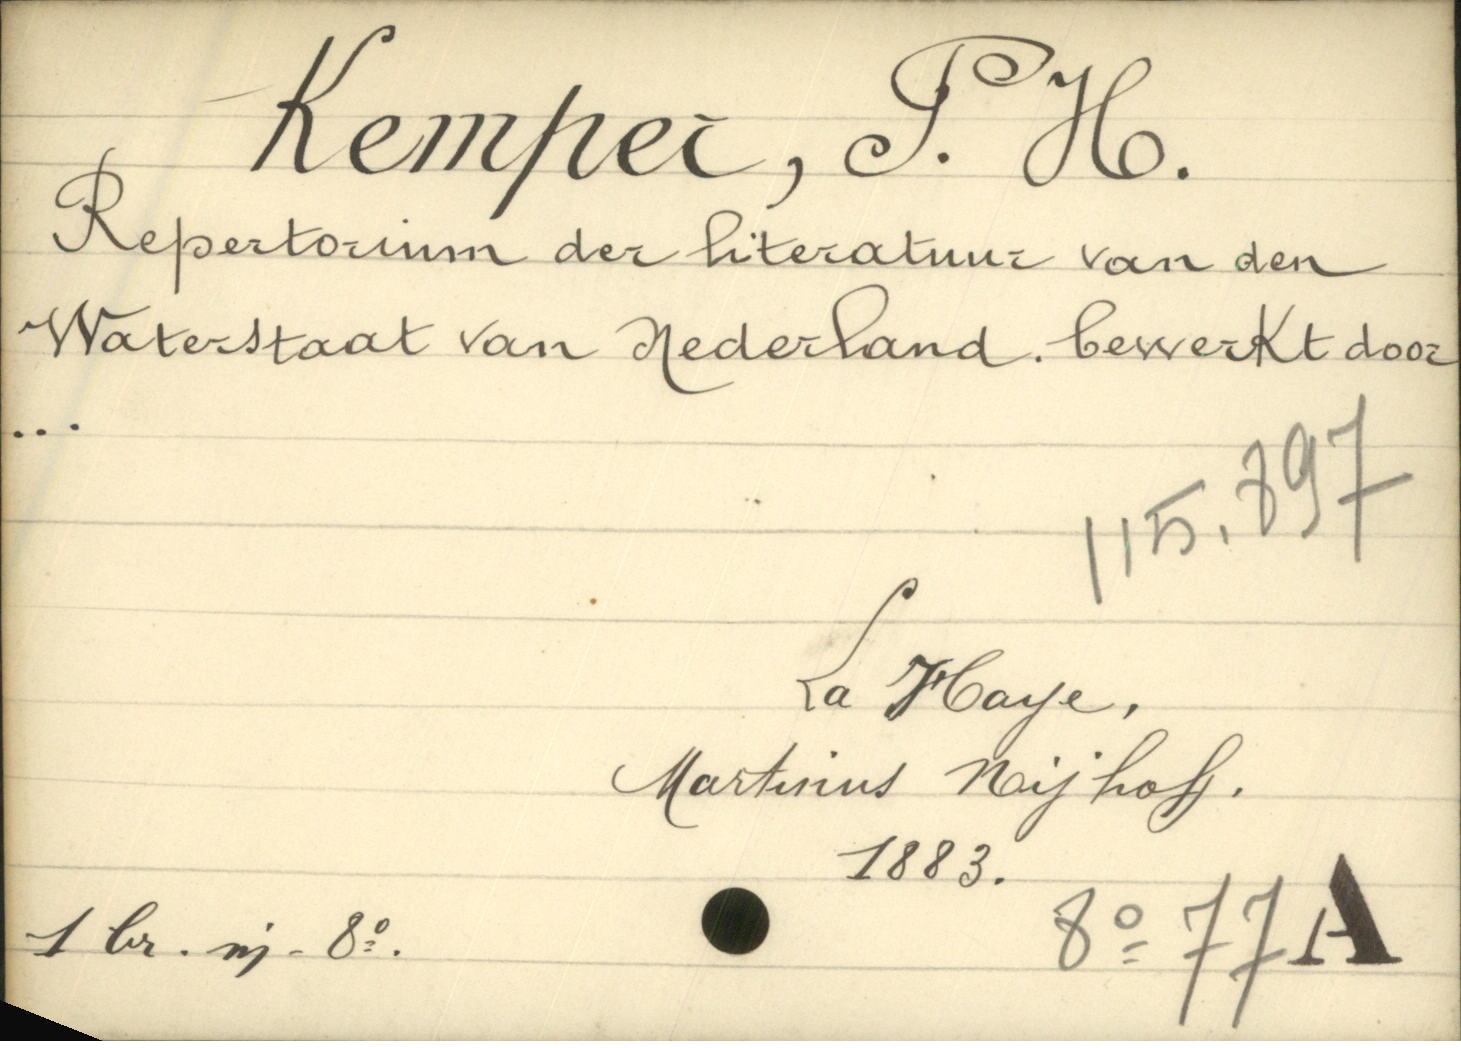 Kemper, P. H.
Repertorium der literatuur van den
Waterstaat van Nederland. bewerkt door
...
115.897
La Haye,
Martinus Nijhoff.
1883.
1 br. nj - 8º.
8º 77 A